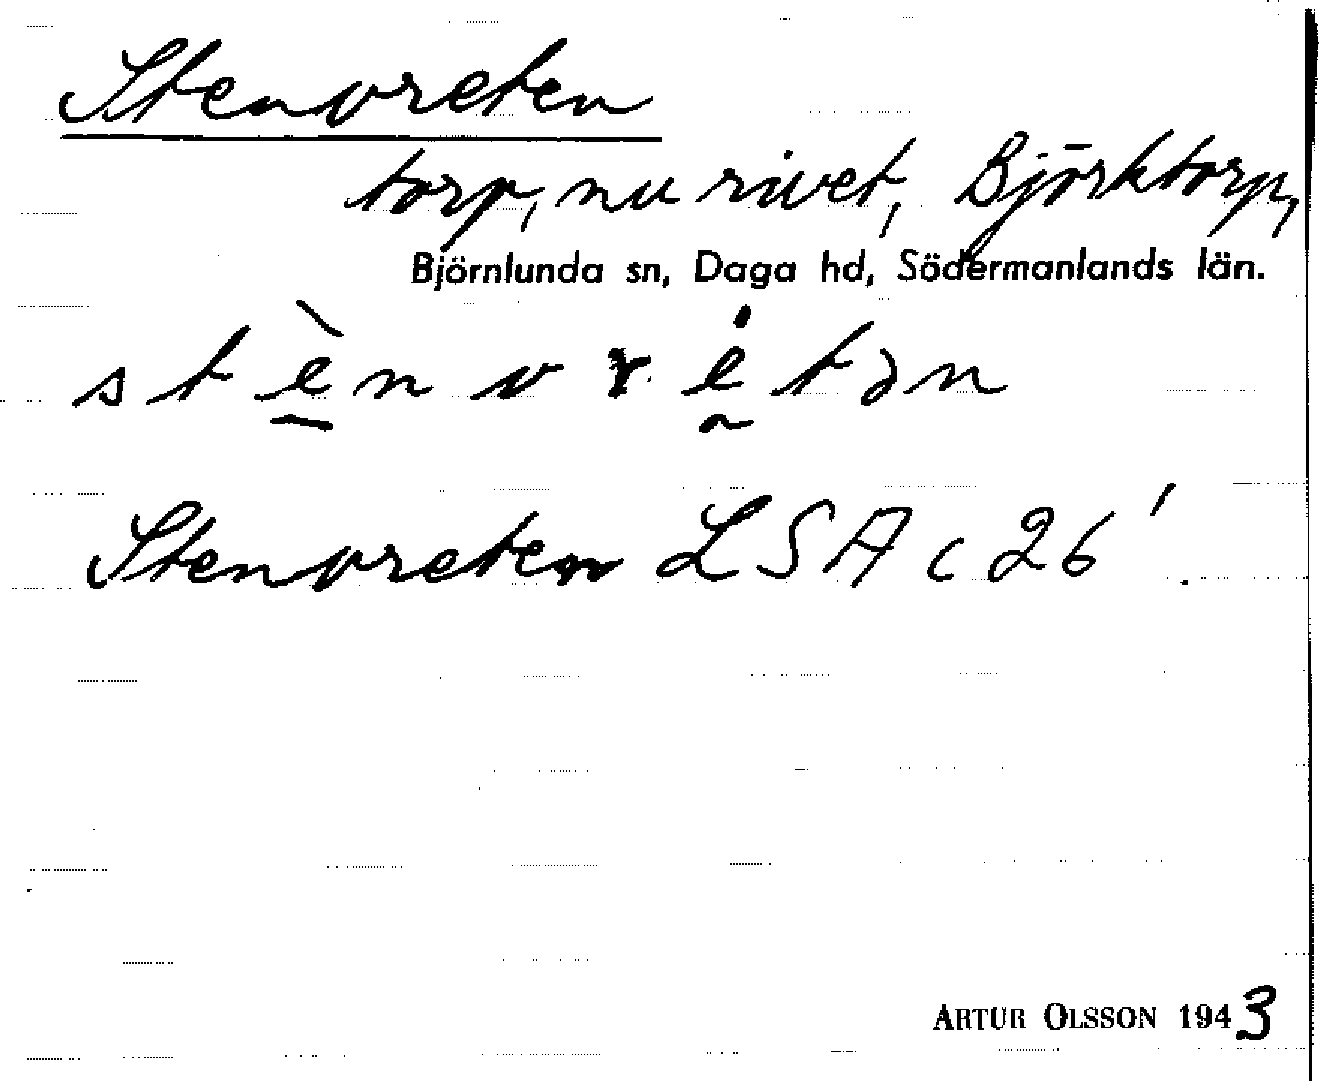 Stenvreten
torp, nu rivet, Björktorp,
Björnlunda sn, Daga hd, Södermanlands län.
stè̱nvrḛ̇tən
Stenvreten LSA c 26'.
ARTUR OLSSON 1943